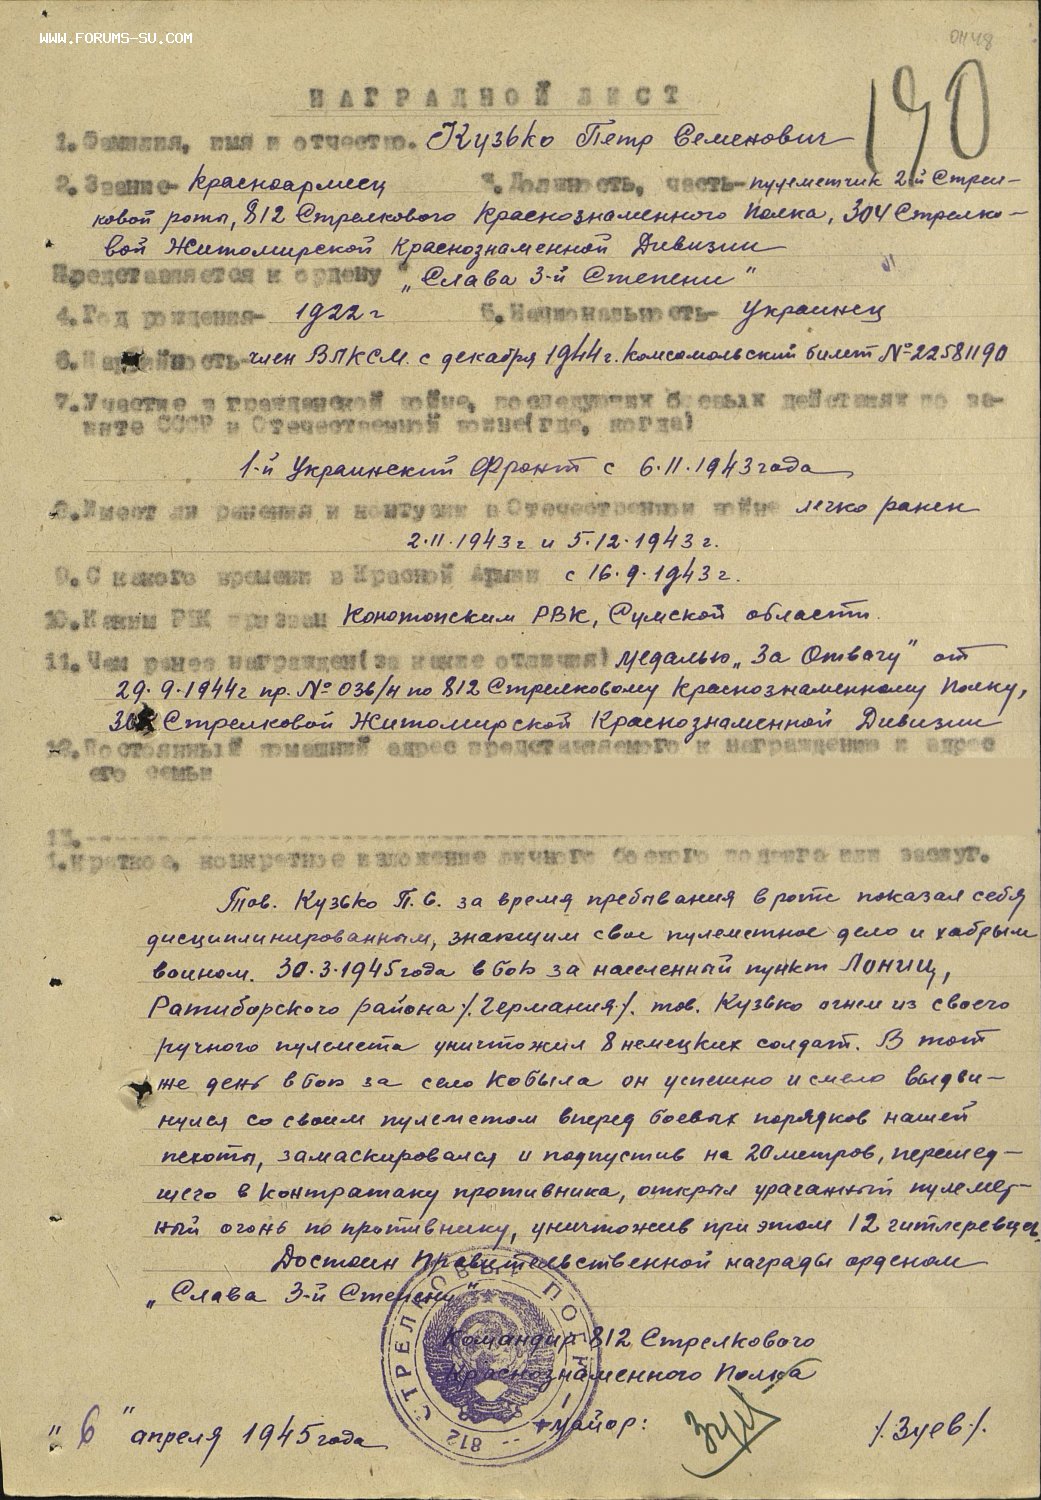 WWW.FORUMS-SU.COM
ОН48
190
НАГРАДНОЙ ЛИСТ
1. Фамилия, имя и отчество. Кузько Петр Семенович
2. Звание- Красноармеец 3. Должность, часть- пулеметчик 2-й Стрел-
ковой роты, 812 Стрелкового Краснознаменного Полка, 304 Стрелко-
вой Житомирской Краснознаменной Дивизии
Представляется к ордену "Слава 3-й Степени"
4. Год рождения- 1922 г 5. Национальность- Украинец
6. Партийность- член ВЛКСМ. с декабря 1944 г. Комсомольский билет №22581190
7. Участие в гражданской войне, последующих боевых действиях по за-
щите СССР и Отечественной войне(где, когда)
1-й Украинский Фронт с 6.11.1943 года
8. Имеет ли ранения и контузии в Отечественной войне легко ранен
2.11.1943 г и 5.12.1943 г.
9. С какого времени в Красной Армии с 16.9.1943 г.
10. Каким РВК призван Конотопским РВК, Сумской области.
11. Чем ранее награжден(за какие отличия) Медалью „За Отвагу" от
29.9.1944 г пр. № 036/н по 812 Стрелковому Краснознаменному Полку,
304 Стрелковой Житомирской Краснознаменной Дивизии
12. Постоянный домашний адрес представляемого к награждению и адрес
его семьи
13.
1. Краткое, конкретное изложение личного боевого подвига или заслуг.
Тов. Кузько П.С. за время пребывания в роте показал себя
дисциплинированным, знающим свое пулеметное дело и храбрым
воином. 30.3.1945 года в бою за населенный пункт Лониц,
Ратиборского района /.Германия/. тов. Кузько огнем из своего
ручного пулемета уничтожил 8 немецких солдат. В тот
же день в бою за село Кобыла он успешно и смело выдви-
нулся со своим пулеметом вперед боевых порядков нашей
пехоты, замаскировался и подпустив на 20 метров, перешед-
шего в контратаку противника, открыл ураганный пулемет-
ный огонь по противнику, уничтожив при этом 12 гитлеровцев.
Достоин Правительственной награды орденом
„Слава 3-й Степени"
Командир 812 Стрелкового
Краснознаменного Полка
майор: /.Зуев/.
"6" апреля 1945 года
812 СТРЕЛКОВЫЙ ПОЛК